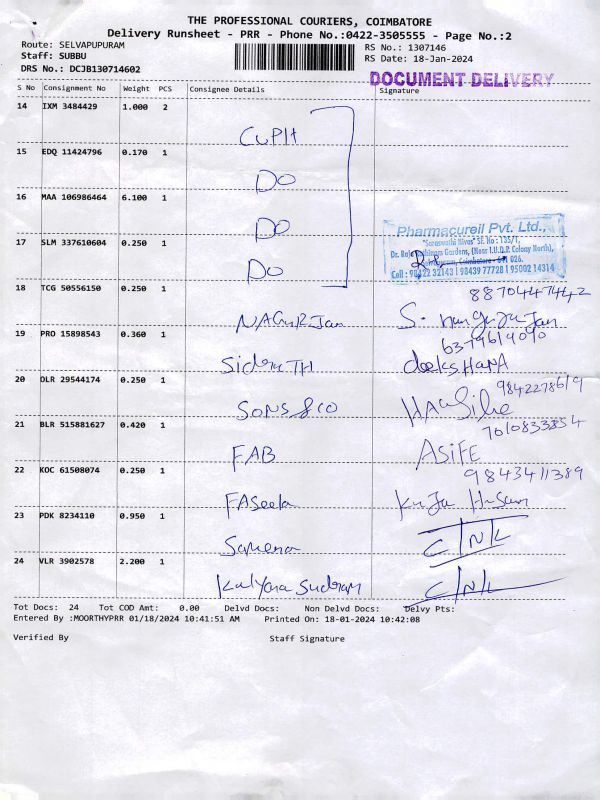 THE PROFESSIONAL COURIERS, COIMBATORE
Delivery Runsheet - PRR - Phone No.:0422-3505555 - Page No.:2
Route: SELVAPUPURAM
Staff: SUBBU
DRS No.: DCJB130714602
RS No.: 1307146
RS Date: 18-Jan-2024
DOCUMENT DELIVERY
S No Consignment No Weight PCS Consignee Details Signature
14 IXM 3484429 1.000 2
CUPH
15 EDQ 11424796 0.170 1
DO
16 MAA 106986464 6.100 1
DO
17 SLM 337610604 0.250 1
DO
Pharmacureil Pvt. Ltd.,
"Saraswathi Nivas" Sf. No : 135/1,
Gardens, (Near I.U.D.P. Colony North),
Coimbatore - 641 026.
Cell : 98422 32143 | 98439 77728 | 95002 14314
18 TCG 50556150 0.250 1
8870447442
19 PRO 15898543 0.360 1
6379619090
SiddarTH deeksHANA
20 DLR 29544174 0.250 1
9842278619
SONS & CO
21 BLR 515881627 0.420 1
7010833854
FAB ASIFE
22 KOC 61508074 0.250 1
9843411389
FASeela
23 PDK 8234110 0.950 1
C/N/L
24 VLR 3902578 2.200 1
Kalyana Sundram C/N/L
Tot Docs: 24 Tot COD Amt: 0.00 Delvd Docs: Non Delvd Docs: Delvy Pts:
Entered By :MOORTHYPRR 01/18/2024 10:41:51 AM Printed On: 18-01-2024 10:42:08
Verified By Staff Signature